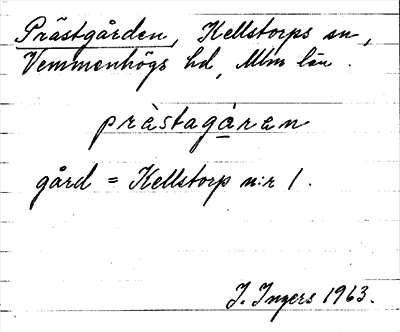 Prästgården, Kellstorps sn,
Vemmenhögs hd, Mlm län.
prästagáren
gård = Kellstorp n:r 1.
I. Ingers 1963.